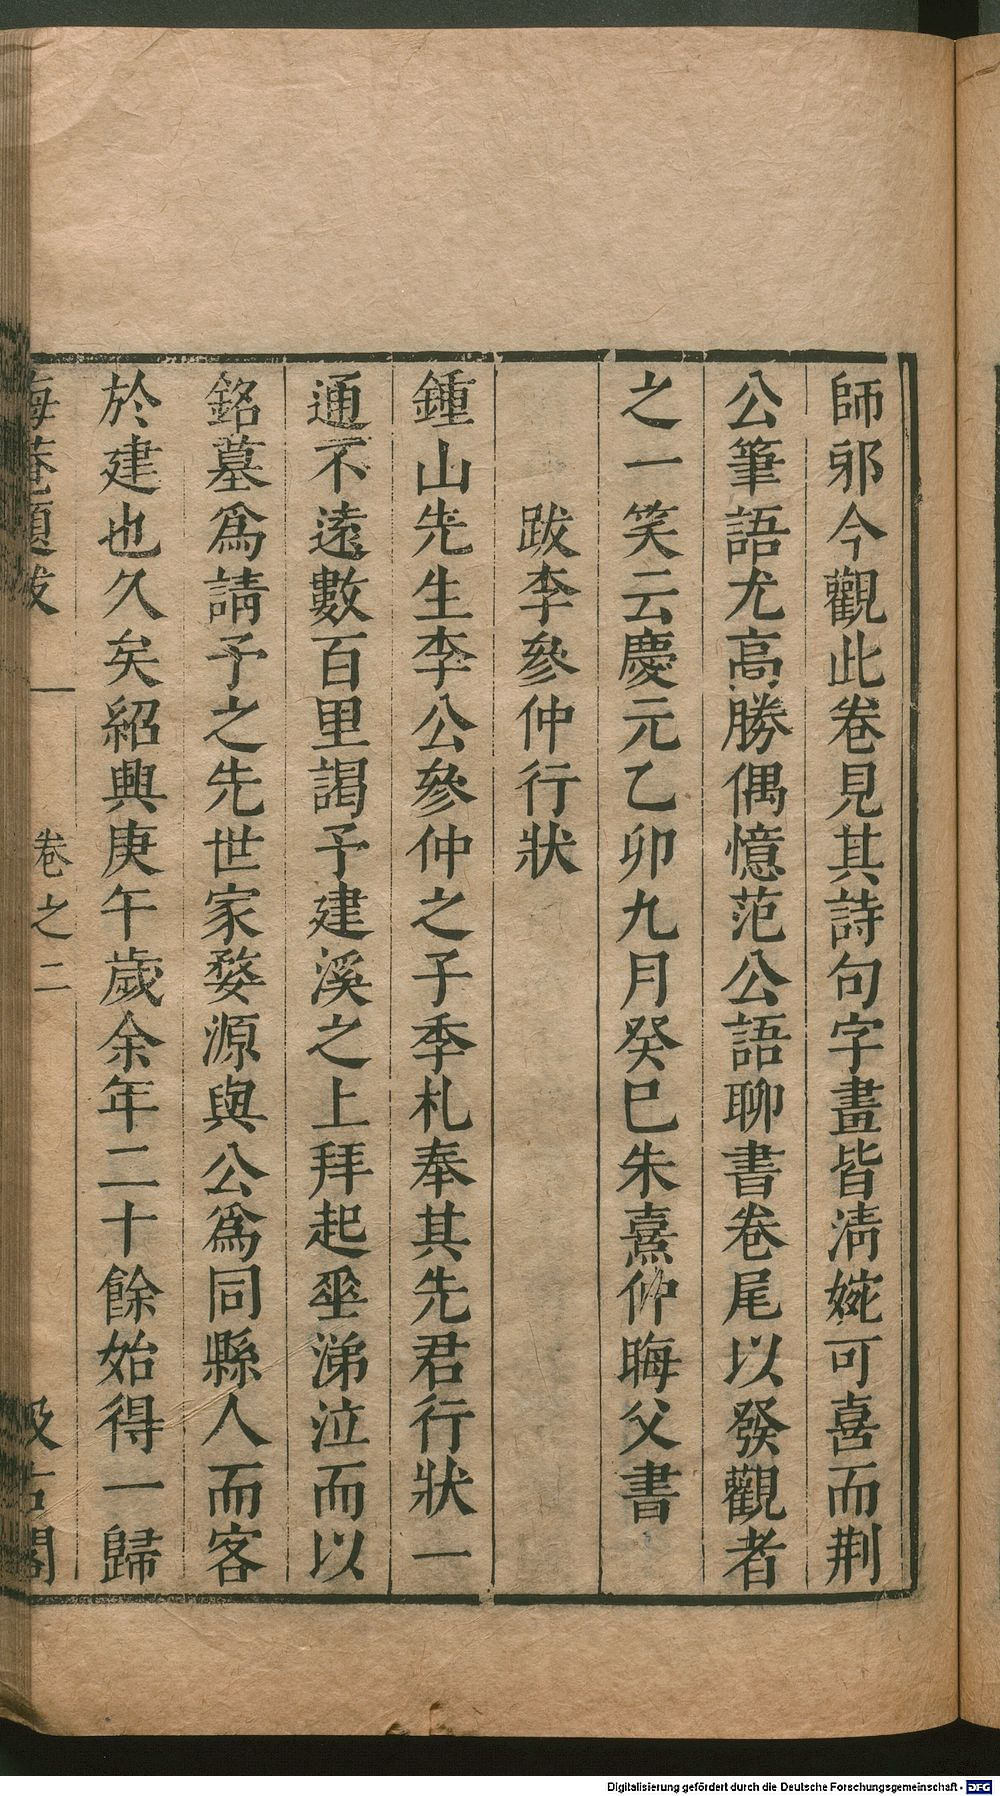 師邪今觀此卷見其詩句字畫皆淸婉可喜而荆
公筆語尤高勝偶憶范公語聊書卷尾以發觀者
之一笑云慶元乙卯九月癸巳朱熹仲晦父書
跋李參仲行狀
鍾山先生李公參仲之子季札奉其先君行狀一
通不遠數百里謁予建溪之上拜起垂涕泣而以
銘墓爲請予之先世家婺源與公爲同縣人而客
於建也久矣紹興庚午歲余年二十餘始得一歸
晦菴題跋 一 卷之二 汲古閣
Digitalisierung gefördert durch die Deutsche Forschungsgemeinschaft - DFG